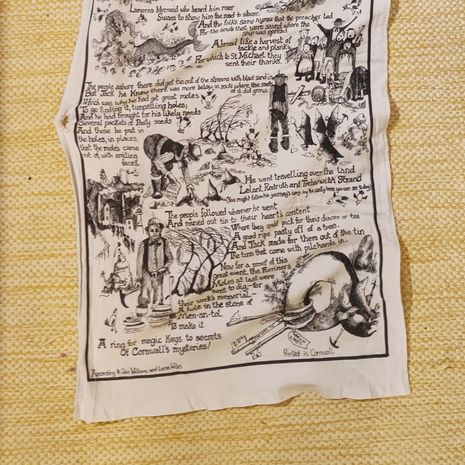 Lamorna Mermaid who heard him roar
Swam to show him the road to shore.
And the folks sang hymns that the preacher led
For the souls that were saved where the
ship was spread.
Abroad like a harvest of
tackle and planks
For which to St Michael they
sent their thanks!
The people ashore there did get tin out of the streams with black sand in
But Jack he knew there was more below in rocks where the
it did grow.
Which was why he had got great moles
To go finding it, tunnelling holes,
And he had brought for his likely needs
Several packets of Pasty seeds
And these he put in
the holes, in places,
that the moles came
out at, with smiling
faces.
He went travelling over the land
Lelant, Redruth and Trebarwith Strand
(You might follow his journey's way by the pasty trees you can see today)
The people followed wherever he went
And mined out tin to their heart's content
Where they could pick for their dinner or tea
A good ripe pasty off of a tree.
And Jack made for them out of the tin
The tins that come with pilchards in.
Now for a proof of this
great event, the Ferriner's
Moles at last were
sent to dig - for
their work's memorial -
A hole in the stone of
Men-an-tol,
To make it
A ring for magic Keys to secrets
Of Cornwall's mysteries!
Printed in Cornwall.
According to John Williams and Lorna Wiles